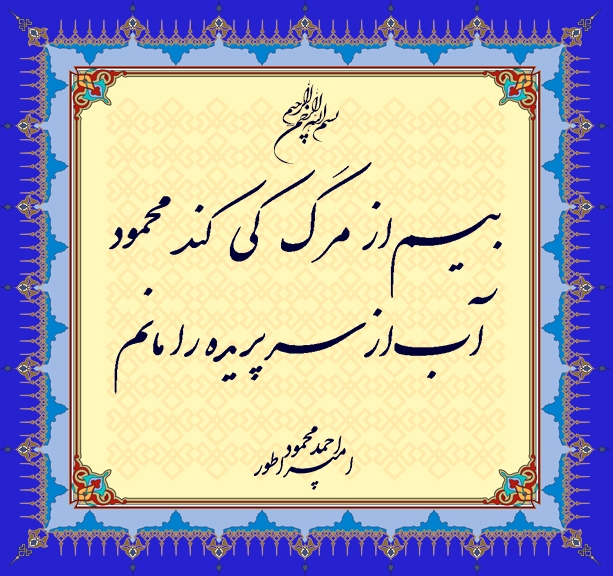 بسم الله الرحمن الرحیم
بیم از مَرگ کی کند محمود
آب از سر پریده را مانم
احمد محمود امپراطور